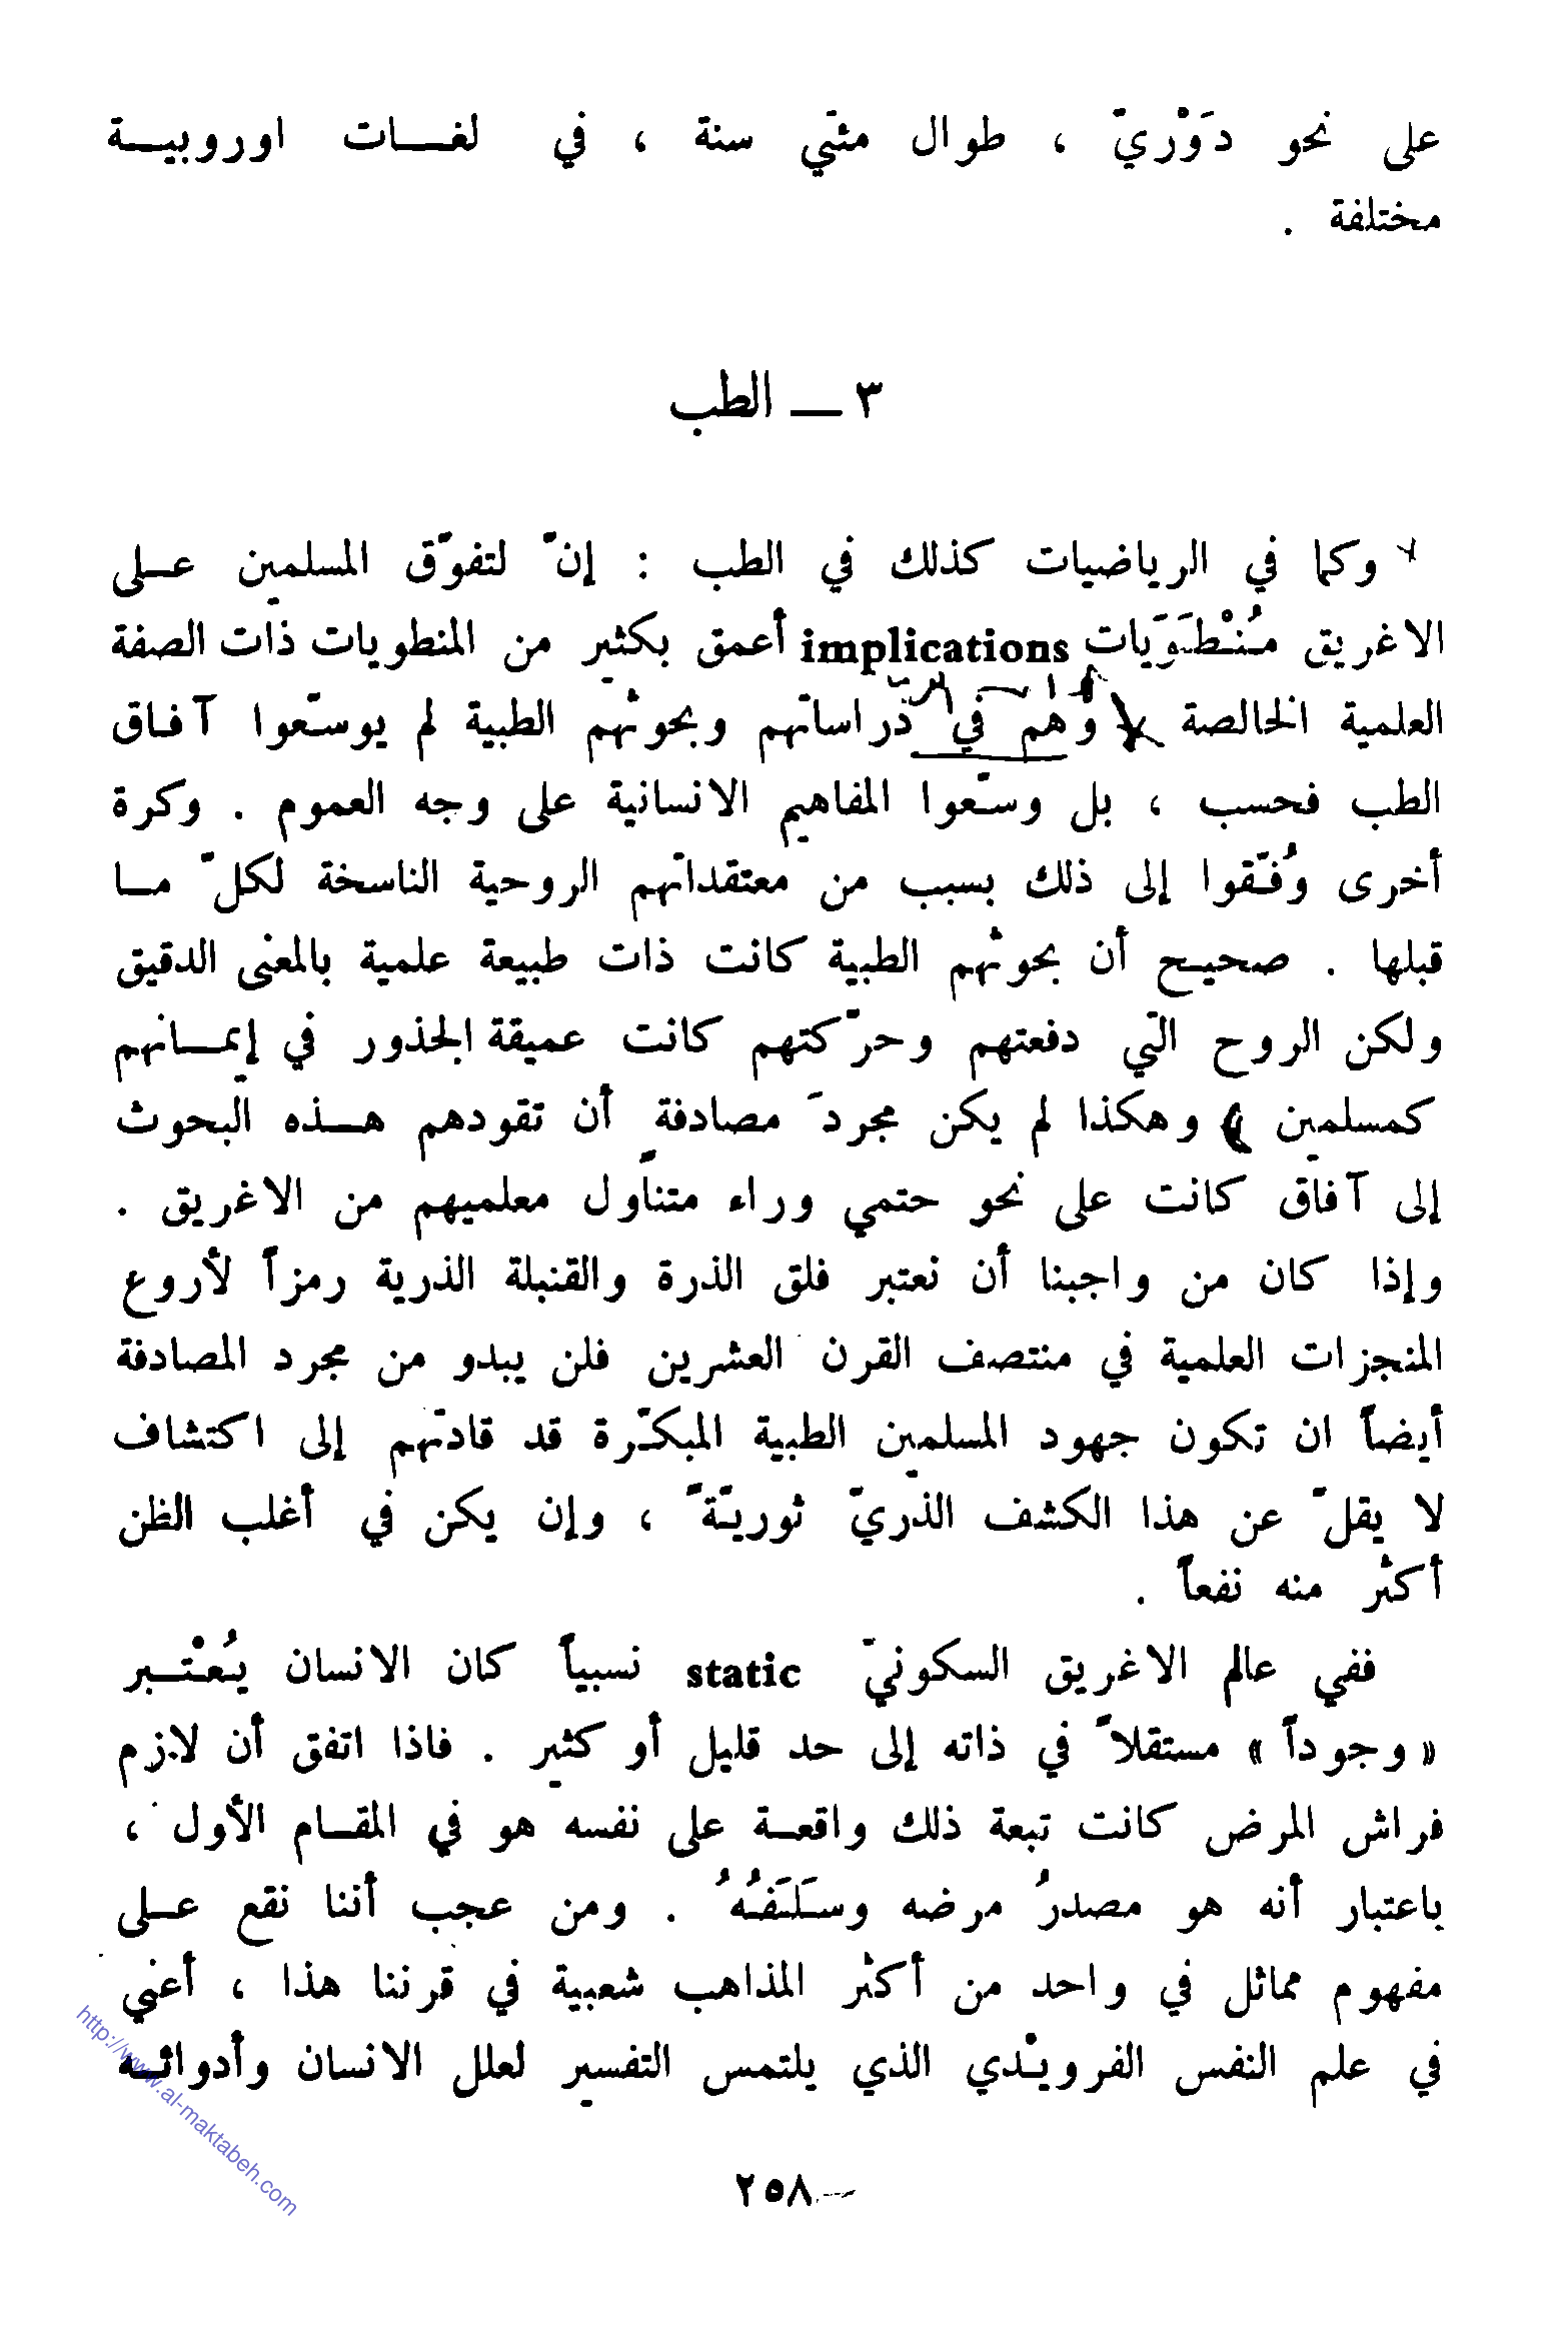 على نحو دَوْريّ ، طوال مئتي سنة ، في لغات اوروبية
مختلفة .
٣ — الطب
وكما في الرياضيات كذلك في الطب : إنّ لتفوّق المسلمين على
الاغريق مُنْطَوَيات implications أعمق بكثير من المنطويات ذات الصفة
العلمية الخالصة وهم في دراساتهم وبحوثهم الطبية لم يوسّعوا آفاق
الطب فحسب ، بل وسّعوا المفاهيم الانسانية على وجه العموم . وكرة
أخرى وُفّقوا إلى ذلك بسبب من معتقداتهم الروحية الناسخة لكلّ ما
قبلها . صحيح أن بحوثهم الطبية كانت ذات طبيعة علمية بالمعنى الدقيق
ولكن الروح التي دفعتهم وحرّكتهم كانت عميقة الجذور في إيمانهم
كمسلمين وهكذا لم يكن مجردَ مصادفة أن تقودهم هذه البحوث
إلى آفاق كانت على نحو حتمي وراء متناول معلميهم من الاغريق .
وإذا كان من واجبنا أن نعتبر فلق الذرة والقنبلة الذرية رمزاً لأروع
المنجزات العلمية في منتصف القرن العشرين فلن يبدو من مجرد المصادفة
أيضاً ان تكون جهود المسلمين الطبية المبكّرة قد قادتهم إلى اكتشاف
لا يقلّ عن هذا الكشف الذريّ ثوريّةً ، وإن يكن في أغلب الظن
أكثر منه نفعاً .
ففي عالم الاغريق السكونيّ static نسبياً كان الانسان يُعْتبر
« وجوداً » مستقلاً في ذاته إلى حد قليل أو كثير . فاذا اتفق أن لازم
فراش المرض كانت تبعة ذلك واقعة على نفسه هو في المقام الأول ،
باعتبار أنه هو مصدرُ مرضه وسَلَفُهُ . ومن عجب أننا نقع على
مفهوم مماثل في واحد من أكثر المذاهب شعبية في قرننا هذا ، أعني
في علم النفس الفرويْدي الذي يلتمس التفسير لعلل الانسان وأدوائه
٢٥٨
http://www.al-maktabeh.com